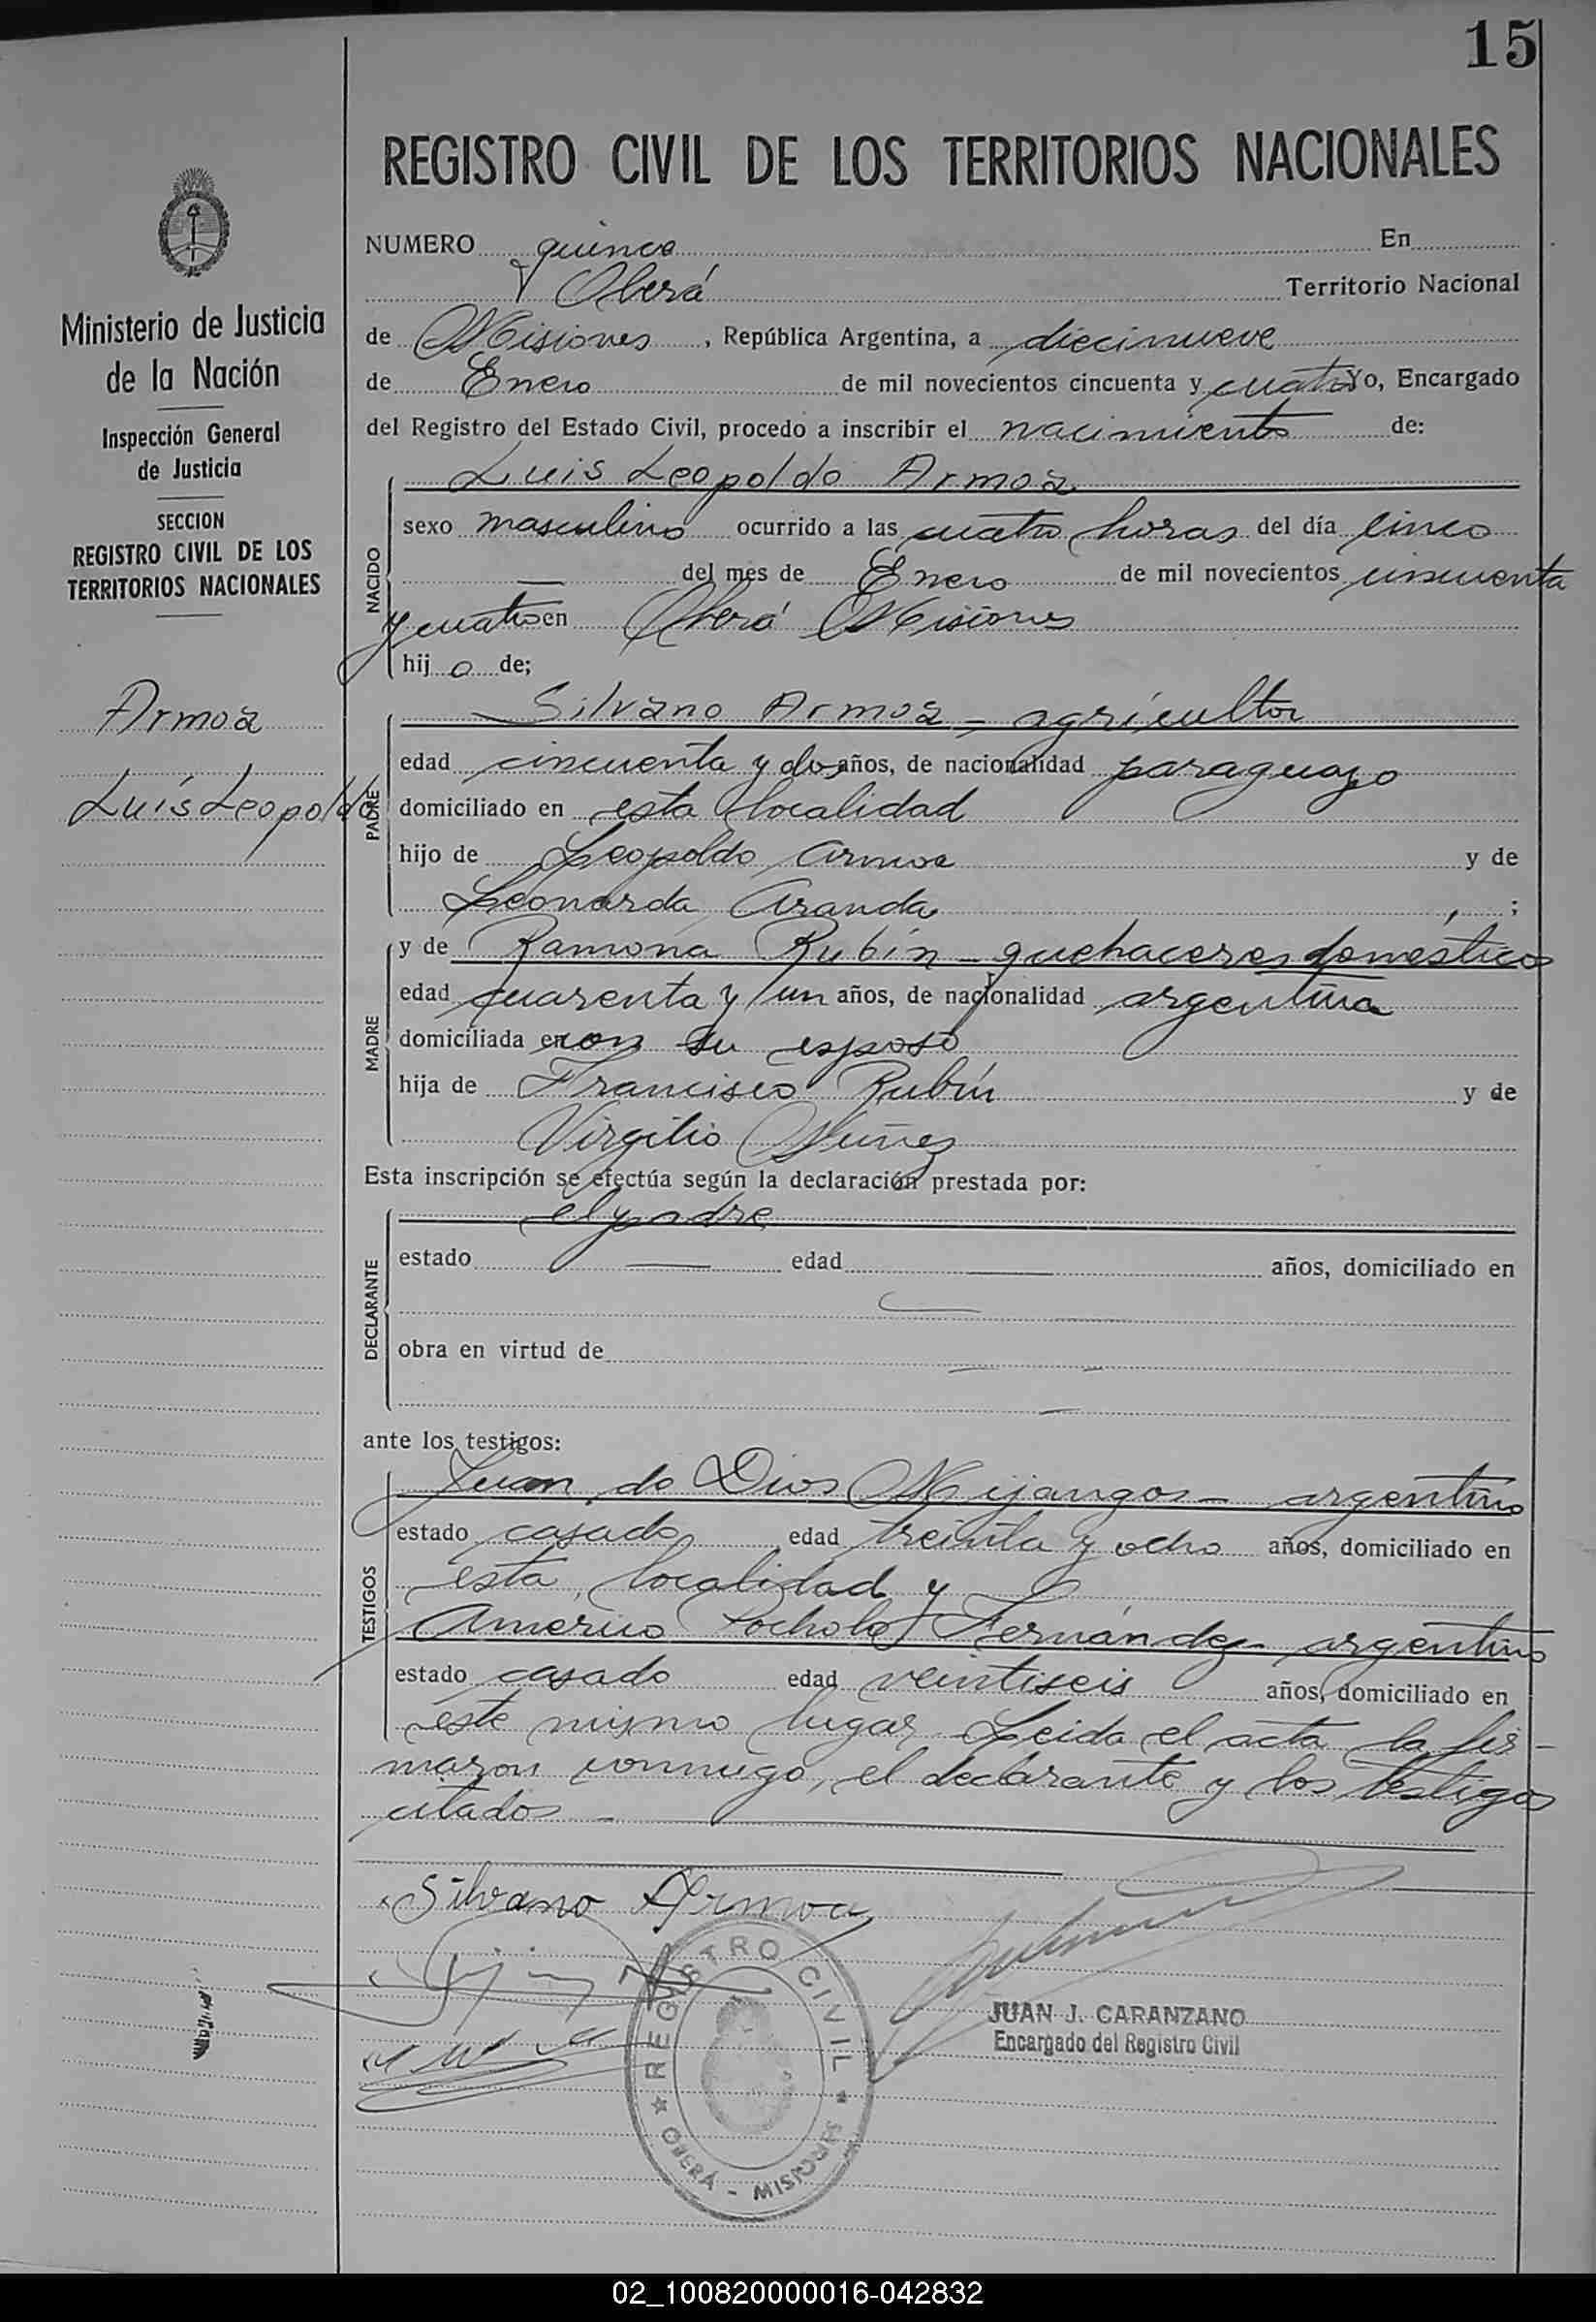 15
REGISTRO CIVIL DE LOS TERRITORIOS NACIONALES
Ministerio de Justicia
de la Nación
Inspección General
de Justicia
SECCION
REGISTRO CIVIL DE LOS
TERRITORIOS NACIONALES
Armoa
Luis Leopoldo
NUMERO quince En
Oberá Territorio Nacional
de Misiones, República Argentina, a diecinueve
de Enero de mil novecientos cincuenta y cuatro Yo, Encargado
del Registro del Estado Civil, procedo a inscribir el nacimiento de:
NACIDO
Luis Leopoldo Armoa
sexo masculino ocurrido a las cuatro horas del día cinco
— del mes de Enero de mil novecientos cincuenta
y cuatro en Oberá Misiones
hij o de;
PADRE
Silvano Armoa - agricultor
edad cincuenta y dos años, de nacionalidad paraguayo
domiciliado en esta localidad
hijo de Leopoldo Armoa y de
Leonarda Aranda, ;
MADRE
y de Ramona Rubín - quehaceres domésticos
edad cuarenta y un años, de nacionalidad argentina
domiciliada en con su esposo
hija de Francisco Rubín y de
Virgilio Núñez
Esta inscripción se efectúa según la declaración prestada por:
DECLARANTE
el padre
estado — edad — años, domiciliado en
obra en virtud de
ante los testigos:
TESTIGOS
Juan de Dios Mijangos - argentino
estado casado edad treinta y ocho años, domiciliado en
esta localidad y
Américo Pocholo Fernández - argentino
estado casado edad veintiseis años, domiciliado en
este mismo lugar. Leida el acta la fir-
maron conmigo, el declarante y los testigos
citados -
Silvano Armoa
REGISTRO CIVIL
OBERÁ - MISIONES
JUAN J. CARANZANO
Encargado del Registro Civil
02_100820000016-042832